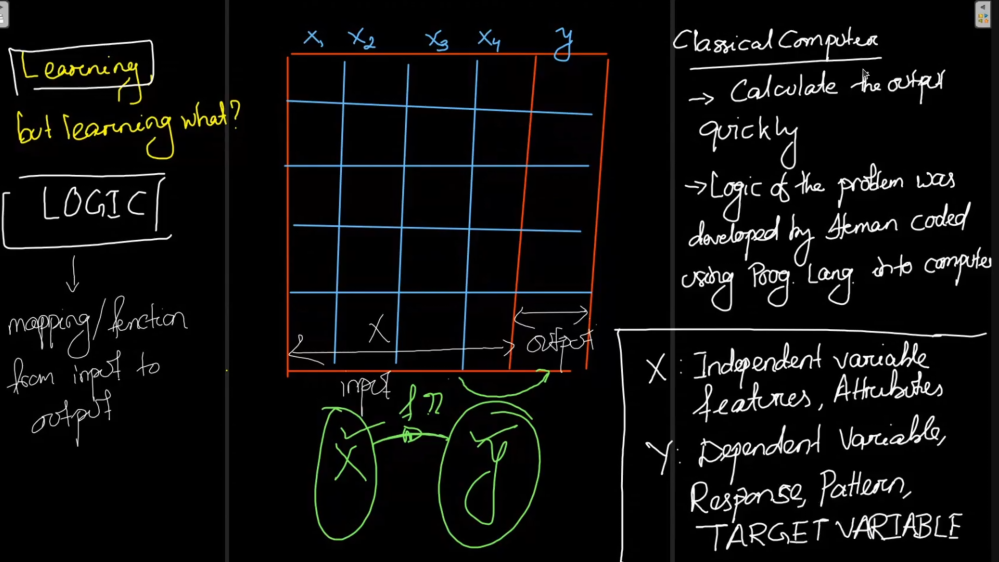 Learning
but learning what?
LOGIC
mapping/function
from input to
output
X1 X2 X3 X4 y
X
output
input
fn
X
y
Classical Computer
→ Calculate the output
quickly
→ Logic of the problem was
developed by Human coded
using Prog. Lang. into computer
X: Independent variable
features, Attributes
Y: Dependent Variable,
Response, Pattern,
TARGET VARIABLE